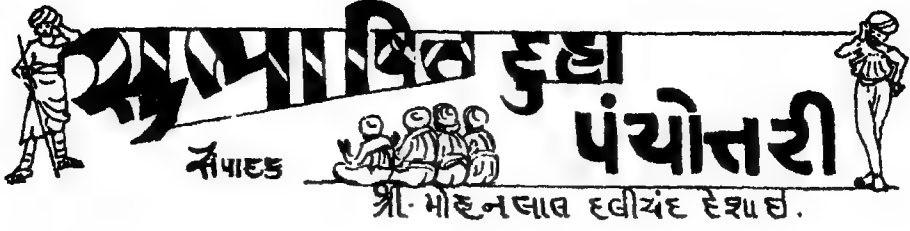 સુભાષિત દુહા
પંચોત્તરી
સંપાદક
શ્રી. મોહનલાલ દલીચંદ દેશાઈ.